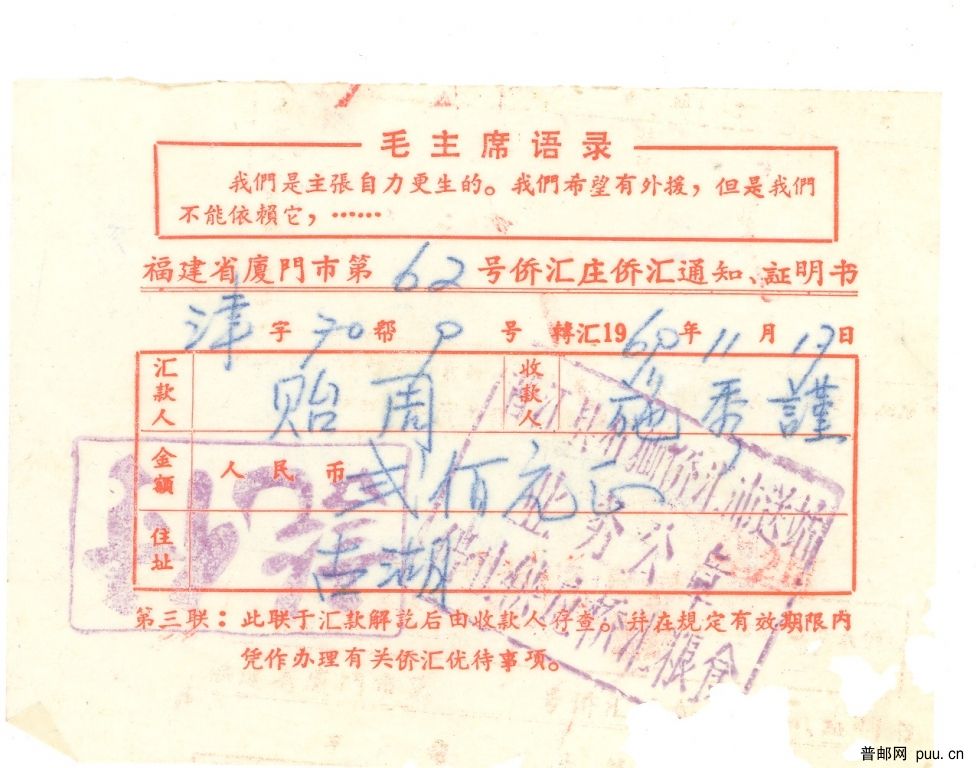 毛主席语录
我們是主張自力更生的。我們希望有外援，但是我們
不能依賴它，……
福建省廈門市第62号侨汇庄侨汇通知、証明书
津字70帮 号 轉汇1969年11月17日
汇款人 贻周 收款人 施秀謹
金額 人民币 弍佰元正
住址 古湖
第三联：此联于汇款解訖后由收款人存查。幷在規定有效期限內
凭作办理有关侨汇优待事項。
普邮网 puu.cn